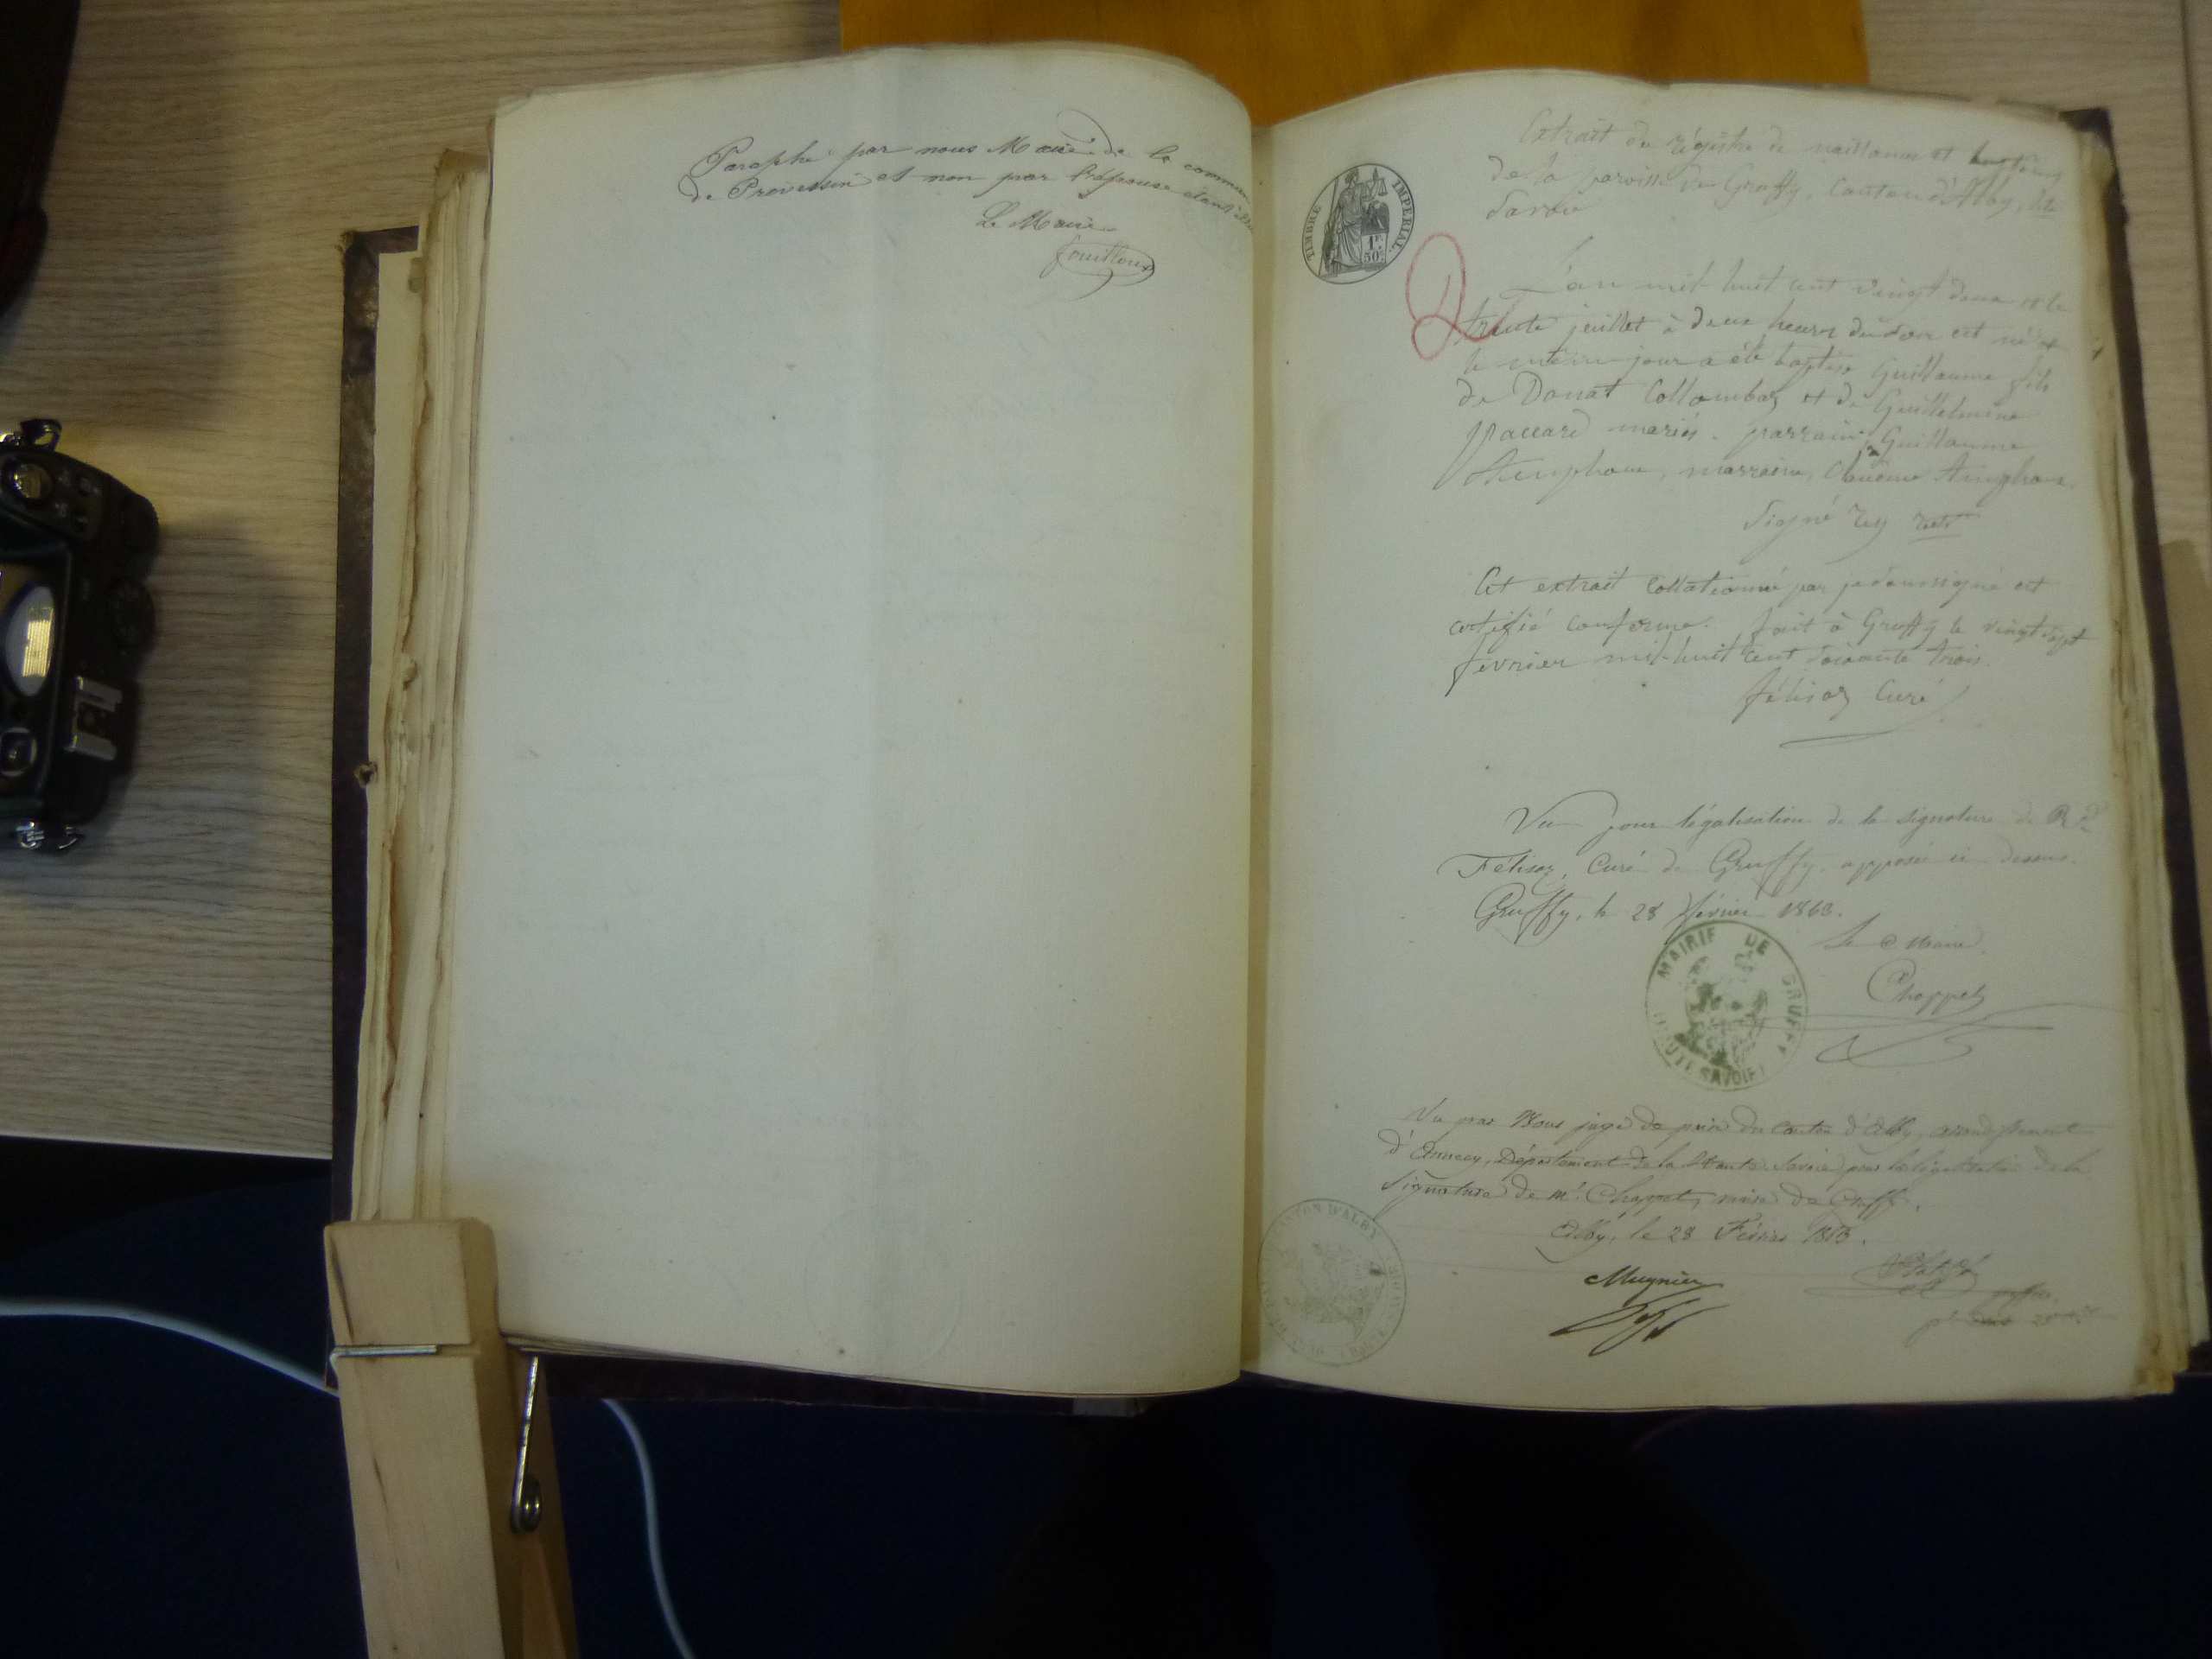 Paraphé par nous Maire de la commune
de Prévessin et non par l'épouse étant
Le Maire
Fouilloux
TIMBRE IMPERIAL
1F
50c
Extrait du régistre de naissances et baptêmes
de la paroisse de Gruffy, Canton d'Alby, Hte
Savoie
L'an mil-huit cent vingt deux et le
trente juillet à deux heures du soir est né et
le même jour a été baptisé Guillaume fils
de Donat Collomba et de Guillelmine
Paccard mariés. parrain, Guillaume
marraine, Claudine
Signé Rey rectr
Cet extrait collationné par je soussigné est
certifié conforme. fait à Gruffy le vingt sept
février mil-huit cent soixante trois.
félisaz Curé
Vu pour légalisation de la signature de Rd
Félisaz, Curé de Gruffy apposée ci dessus.
Gruffy, le 28 février 1863.
Le Maire
Chappet
MAIRIE DE GRUFFY
HAUTE SAVOIE
Vu par Nous juge de paix du canton d'Alby, arrondissement
d'Annecy, Département de la Haute Savoie, pour la légalisation de la
signature de Mr. Chappet, maire de Gruffy.
Alby, le 28 Février 1863.
CANTON D'ALBY
Mugnier